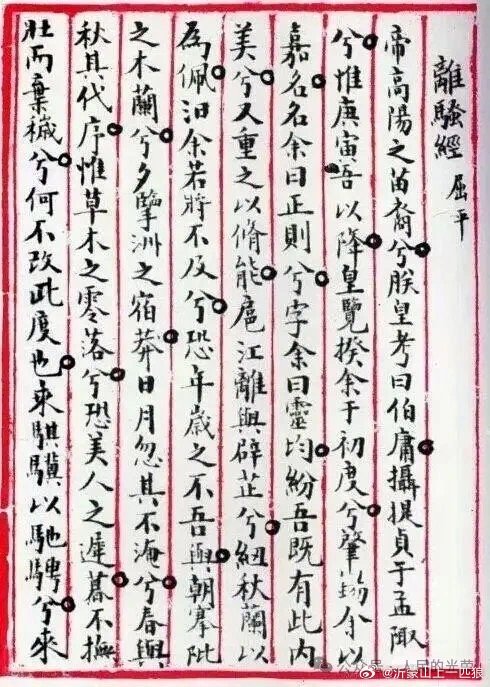 離騷經 屈平
帝高陽之苗裔兮朕皇考曰伯庸攝提貞于孟陬
兮惟庚寅吾以降皇覽揆余于初度兮肇錫余以
嘉名名余曰正則兮字余曰靈均紛吾既有此內
美兮又重之以脩能扈江離與辟芷兮紉秋蘭以
為佩汨余若將不及兮恐年歲之不吾與朝搴阰
之木蘭兮夕擥洲之宿莽日月忽其不淹兮春與
秋其代序惟草木之零落兮恐美人之遲暮不撫
壯而棄穢兮何不改此度也来騏驥以馳騁兮来
@沂蒙山上一匹狼